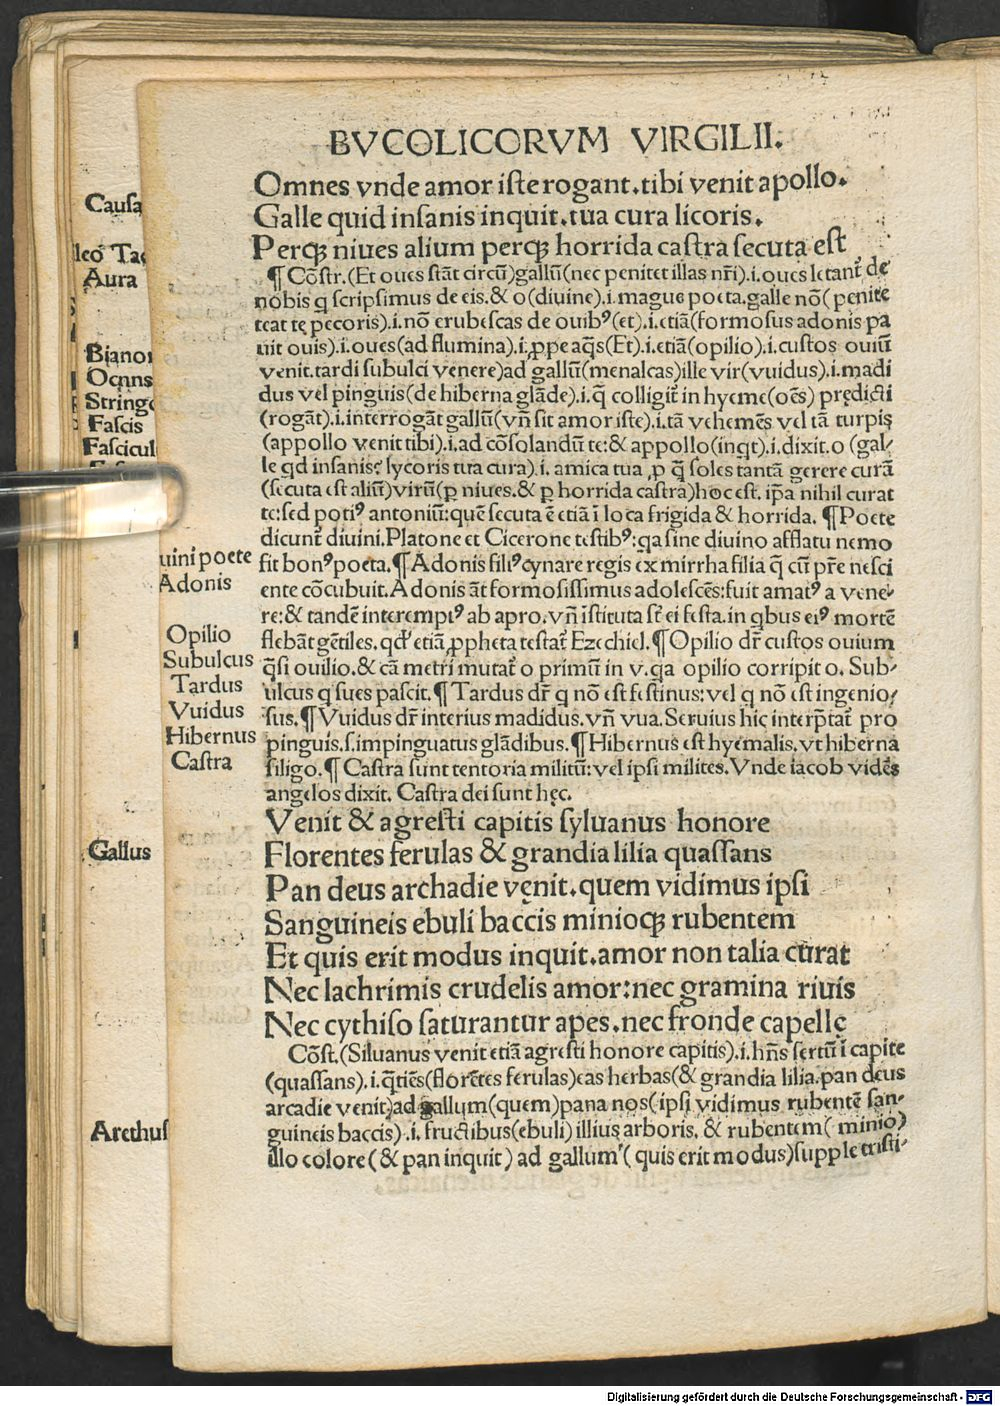 BVCOLICORVM VIRGILII.
Omnes vnde amor iste rogant.tibi venit apollo.
Galle quid insanis inquit.tua cura licoris.
Perqꝫ niues alium perqꝫ horrida castra secuta est
¶ Cōstr.(Et oues stāt circū)gallū(nec penitet illas nr̄i).i.oues letant᷑ de
nobis q scripsimus de eis.& o(diuine).i.magne poeta.galle nō(penite
teat te pecoris).i.nō erubescas de ouibꝰ(et).i.etiā(formosus adonis pa
uit ouis).i.oues(ad flumina).i.ꝓpe aq̄s(Et).i.etiā(opilio).i.custos ouiū
venit.tardi subulci venere)ad gallū(menalcas)ille vir(vuidus).i.madi
dus vel pinguis(de hiberna glāde).i.q̄ colligit᷑ in hyeme(oēs) prędicti
(rogāt).i.interrogāt gallū(vn̄ sit amor iste).i.tā vehemēs vel tā turpis
(appollo venit tibi).i.ad cōsolandū te:& appollo(inqt).i.dixit.o (gal-
le qd insanis? lycoris tua cura).i. amica tua ,ꝓ q̄ soles tantā gerere curā
(secuta est aliū)virū(ꝑ niues.& ꝑ horrida castra)hoc est. ip̄a nihil curat
te:sed potiꝰ antoniū:quē secuta ē etiā ī loca frigida & horrida. ¶ Poete
dicunt᷑ diuini.Platone et Cicerone testibꝰ:qa sine diuino afflatu nemo
fit bonꝰ poeta.¶ Adonis filiꝰ cynare regis ex mirrha filia q̄ cū pr̄e nesci
ente cōcubuit.Adonis āt formosissimus adolescēs:fuit amatꝰ a vene-
re:& tandē interemptꝰ ab apro.vn̄ īstituta st̄ ei festa.in qbus eiꝰ mortē
flebāt gētiles.qd᷑ etiā ꝓpheta testat᷑ Ezechiel.¶ Opilio dr̄ custos ouium
q̄si ouilio.& cā metri mutat᷑ o primū in v.qa opilio corripit o. Sub-
ulcus q sues pascit.¶ Tardus dr̄ q nō est festinus:vel q nō est ingenio-
sus.¶ Vuidus dr̄ interius madidus.vn̄ vua.Seruius hic interp̄tat᷑ pro
pinguis.s.impinguatus glādibus.¶ Hibernus est hyemalis.vt hiberna
siligo.¶ Castra sunt tentoria militū:vel ipsi milites.Vnde iacob vidēs
angelos dixit. Castra dei sunt hęc.
Venit & agresti capitis syluanus honore
Florentes ferulas & grandia lilia quassans
Pan deus archadie venit.quem vidimus ipsi
Sanguineis ebuli baccis minioqꝫ rubentem
Et quis erit modus inquit.amor non talia curat
Nec lachrimis crudelis amor:nec gramina riuis
Nec cythiso saturantur apes.nec fronde capellę
Cōst.(Siluanus venit etiā agresti honore capitis).i.hn̄s sertū ī capite
(quassans).i.q̄tiēs(florētes ferulas)eas herbas(& grandia lilia.pan deus
arcadie venit)ad gallum(quem)pana nos(ipsi vidimus rubentē san-
guineis baccis).i.fructibus(ebuli)illius arboris.& rubentem( minio)
illo colore(& pan inquit) ad gallum (quis erit modus)supple tristi-
uini poete
Adonis
Opilio
Subulcus
Tardus
Vuidus
Hibernus
Castra
Causa
Aura
Bianor
Ocnns
Fascis
Fascicul
Gallus
Arethus
Digitalisierung gefördert durch die Deutsche Forschungsgemeinschaft - DFG